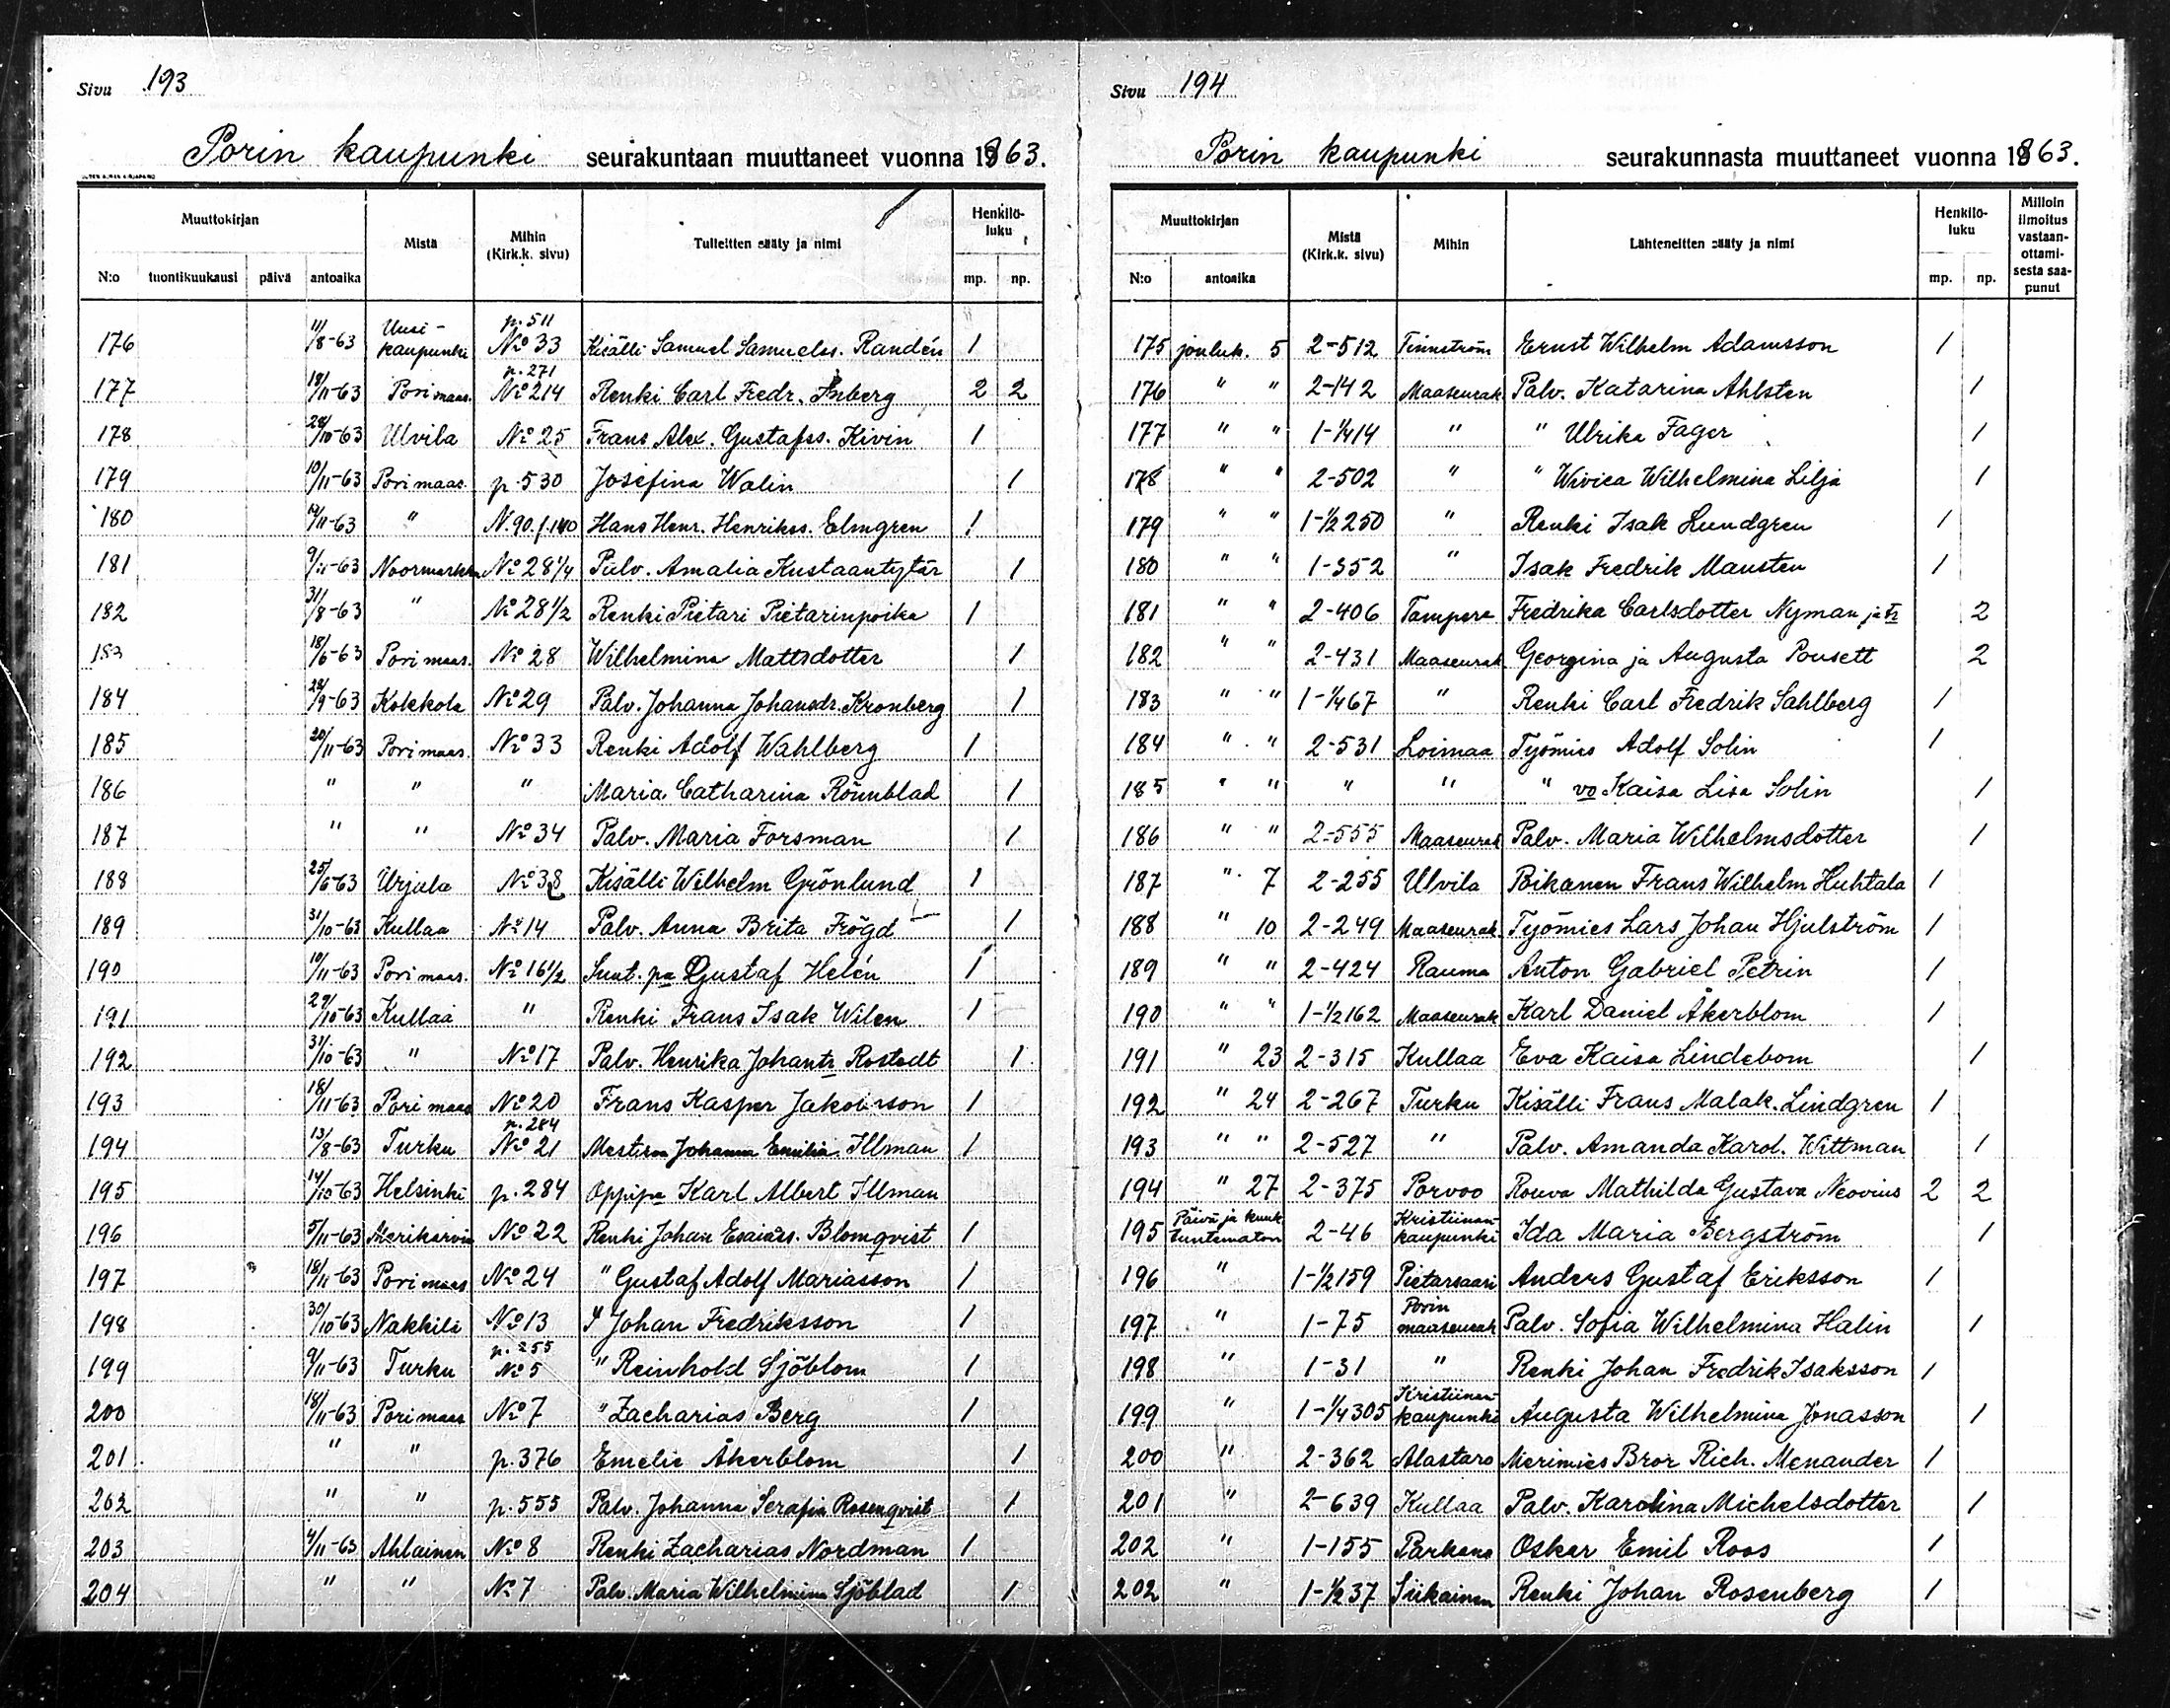 Sivu 193
Porin kaupunki seurakuntaan muuttaneet vuonna 1863.
Muuttokirjan Mistä Mihin (Kirk.k. sivu) Tulleitten sääty ja nimi Henkilöluku
N:o tuontikuukausi päivä antoaika mp. np.
176 11/8-63 Uusikaupunki p. 511 No 33 Kisälli Samuel Samuelss. Randén 1
177 18/11-63 Pori maas. p. 271 No 214 Renki Carl Fredr. 2 2
178 28/10-63 Ulvila No 25 Frans Alex. Gustafss. Kivin 1
179 10/11-63 Pori maas. p. 530 Josefina Walin 1
180 /11-63 " N. 90. Hans Henr. Henrikss. Elmgren 1
181 9/11-63 Noormarkku No 28 1/4 Palv. Amalia Kustaantytär 1
182 31/8-63 " No 28 1/2 Renki Pietari Pietarinpoika 1
183 18/6-63 Pori maas. No 28 Wilhelmina Mattsdotter 1
184 28/9-63 Kokkola No 29 Palv. Johanna Johansdr. Kronberg 1
185 20/11-63 Pori maas. No 33 Renki Adolf Wahlberg 1
186 " " " Maria Catharina Rönnblad 1
187 " " No 34 Palv. Maria Forsman 1
188 25/6-63 Urjala No 38 Kisälli Wilhelm Grönlund 1
189 31/10-63 Kullaa No 14 Palv. Anna Brita Frögd 1
190 10/11-63 Pori maas. No 16 1/2 Suut. pa Gustaf Helén 1
191 29/10-63 Kullaa " Renki Frans Isak Wilen 1
192 31/10-63 " No 17 Palv. Henrika Johantr Rostedt 1
193 18/11-63 Pori maas No 20 Frans Kasper Jakobsson 1
194 13/8-63 Turku p. 284 No 21 Johanna Emilia Illman 1
195 14/10-63 Helsinki p. 284 Oppipa Karl Albert Illman
196 5/11-63 Merikarvia No 22 Renki Johan Esaiass. Blomqvist 1
197 18/11-63 Pori maas No 24 " Gustaf Adolf Mariasson 1
198 30/10-63 Nakkila No 13 " Johan Fredriksson 1
199 9/11-63 Turku p. 255 No 5 " Reinhold Sjöblom 1
200 18/11-63 Pori maas No 7 " Zacharias Berg 1
201 " " p. 376 Emelie Åkerblom 1
202 " " p. 555 Palv. Johanna Serafia Rosenqvist 1
203 4/11-63 Ahlainen No 8 Renki Zacharias Nordman 1
204 " " No 7 Palv. Maria Wilhelmina Sjöblad 1
Sivu 194
Porin kaupunki seurakunnasta muuttaneet vuonna 1863.
Muuttokirjan Mistä (Kirk.k. sivu) Mihin Lähteneitten sääty ja nimi Henkilöluku Milloin ilmoitus vastaanottamisesta saapunut
N:o antoaika mp. np.
175 jouluk. 5 2-512 Ernst Wilhelm Adamsson 1
176 " " 2-142 Maaseurak Palv. Katarina Ahlsten 1
177 " " 1-1/414 " " Ulrika Fager 1
178 " " 2-502 " " Wivica Wilhelmina Lilja 1
179 " " 1-1/2 250 " Renki Isak Lundgren 1
180 " " 1-352 " Isak Fredrik Mansten 1
181 " " 2-406 Tampere Fredrika Carlsdotter Nyman ja tr 2
182 " " 2-431 Maaseurak Georgina ja Augusta Pousett 2
183 " " 1-1/467 " Renki Carl Fredrik Sahlberg 1
184 " " 2-531 Loimaa Työmies Adolf Solin 1
185 " " " " " vo Kaisa Lisa Solin 1
186 " " 2-555 Maaseurak Palv. Maria Wilhelmsdotter 1
187 " 7 2-255 Ulvila Poikanen Frans Wilhelm Huhtala 1
188 " 10 2-249 Maaseurak. Työmies Lars Johan Hjulström 1
189 " " 2-424 Rauma Anton Gabriel Petrin 1
190 " " 1-1/2 162 Maaseurak Karl Daniel Åkerblom 1
191 " 23 2-315 Kullaa Eva Kaisa Lindebom 1
192 " 24 2-267 Turku Kisälli Frans Malak. Lindgren 1
193 " " 2-527 " Palv. Amanda Karol. Wittman 1
194 " 27 2-375 Porvoo Rouva Mathilda Gustava Neovius 2 2
195 Päivä ja kuuk. tuntematon 2-46 Kristiinankaupunki Ida Maria Bergström 1
196 " 1-1/2 159 Pietarsaari Anders Gustaf Eriksson 1
197 " 1-75 Porin maaseurak Palv. Sofia Wilhelmina Halin 1
198 " 1-31 " Renki Johan Fredrik Isaksson 1
199 " 1-1/4 305 Kristiinankaupunki Augusta Wilhelmina Jonasson 1
200 " 2-362 Alastaro Merimies Bror Rich. Menander 1
201 " 2-639 Kullaa Palv. Karolina Michelsdotter 1
202 " 1-155 Parkano Oskar Emil Roos 1
202 " 1-1/2 37 Siikainen Renki Johan Rosenberg 1